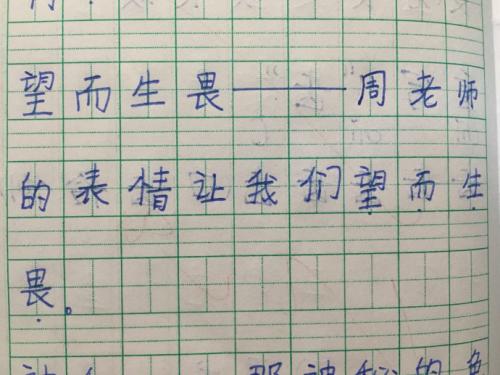 望而生畏——周老师
的表情让我们望而生
畏。
那被私的